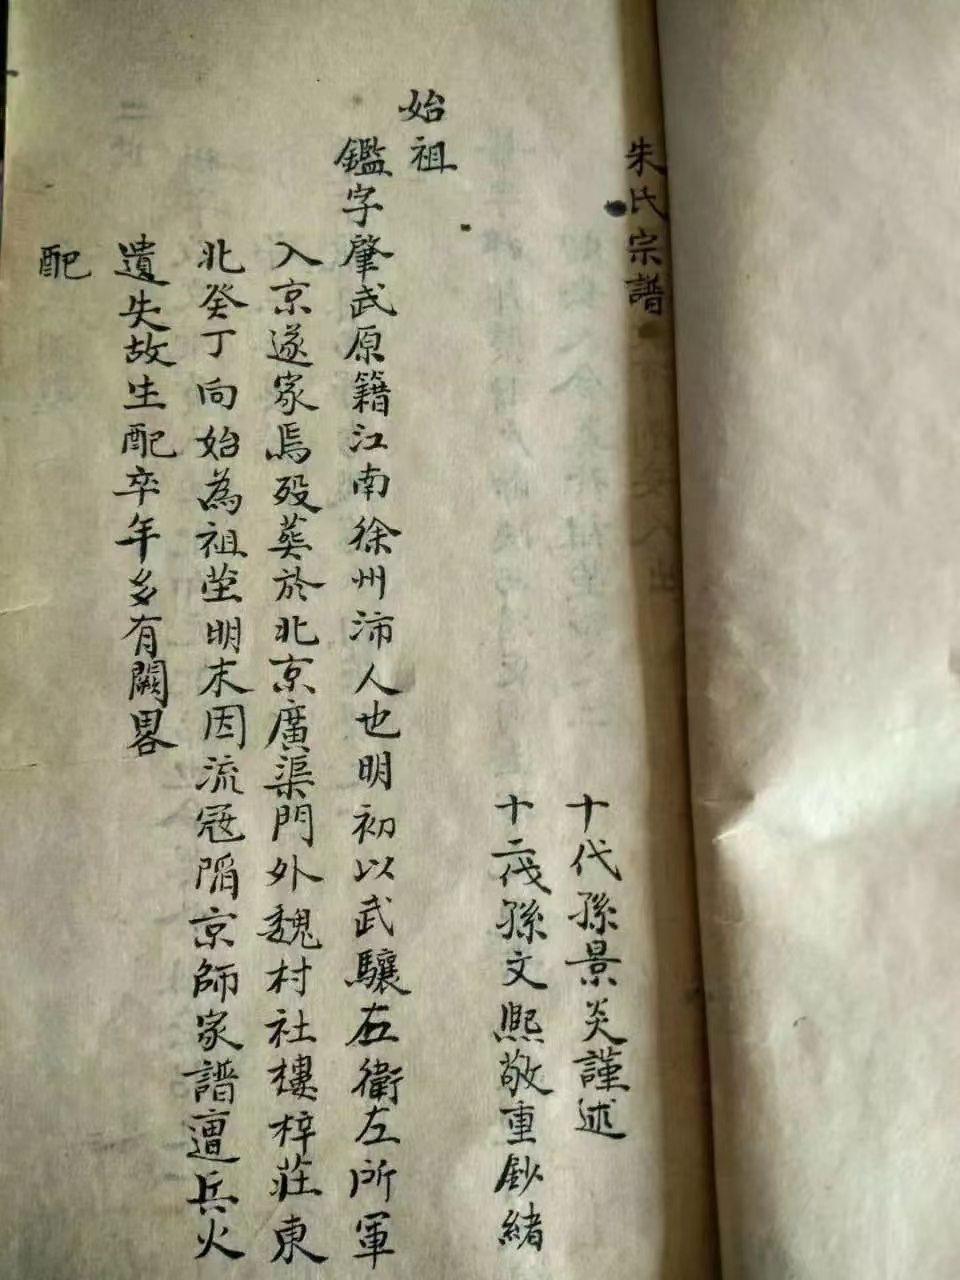 朱氏宗譜
十代孫景炎謹述
十二代孫文熙敬重鈔緒
始祖
鑑字肇武原籍江南徐州沛人也明初以武驤右衛左所軍
入京遂家焉歿葬於北京廣渠門外魏村社樓梓莊東
北癸丁向始為祖塋明末因流冦陷京師家譜遭兵火
遺失故生配卒年多有闕畧
配